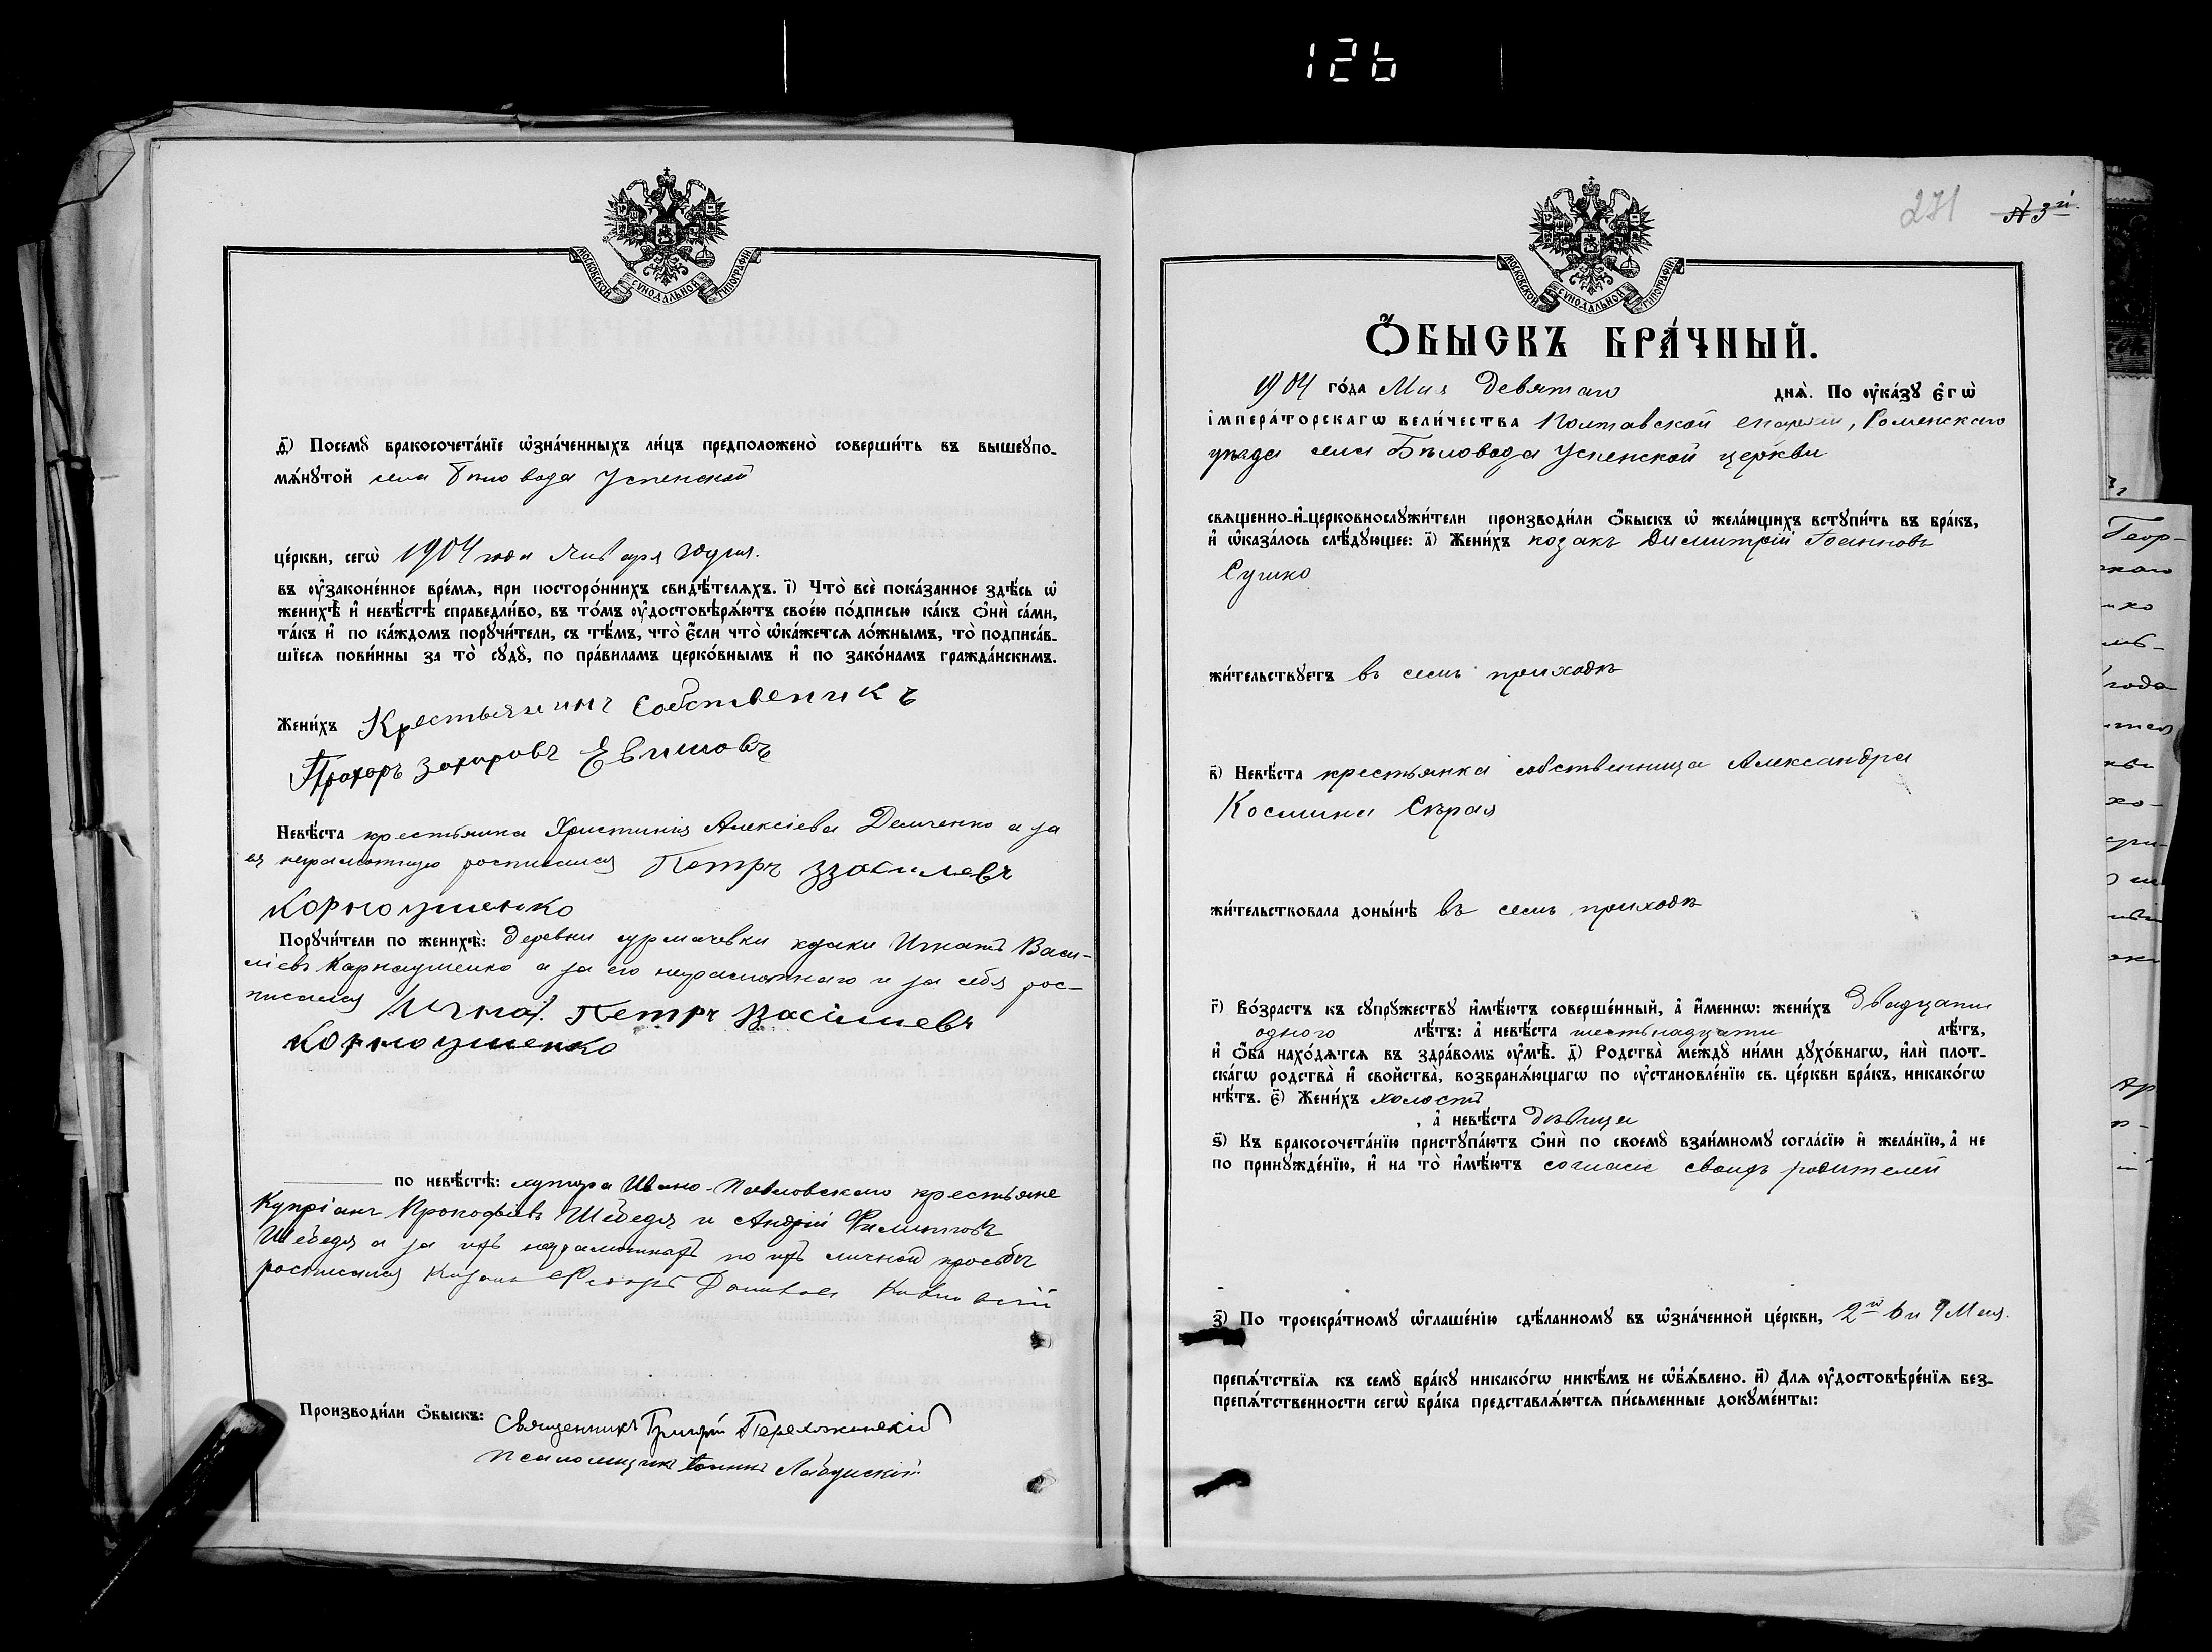 126
МОСКОВСКОЙ СѴНОДАЛЬНОЙ ТИПОГРАФІИ
ѳ҃) Посемꙋ̀ бракосочета́нїе ѡ҆зна́ченныхъ ли́цъ предположено̀ соверши́ть въ вышеꙋпо-
мѧ́нꙋтой села Бѣловода Успенской
це́ркви, сегѡ̀ 1904 года Января
въ ᲂу҆законе́нное вре́мѧ, при посторо́ннихъ свидѣ́телѧхъ. і҃) Что̀ всѐ пока́занное здѣ́сь ѡ҆
женихѣ̀ и҆ невѣ́стѣ справедли́во, въ то́мъ ᲂу҆достовѣрѧ́ютъ свое́ю по́дписью ка́къ ѻ҆нѝ са́ми,
та́къ и҆ по ка́ждомъ порꙋчи́тели, съ тѣ́мъ, что̀ є҆́сли что̀ ѡ҆ка́жетсѧ ло́жнымъ, то̀ подписа́в-
шїесѧ пови́нны за то̀ сꙋдꙋ̀, по пра́виламъ церко́внымъ и҆ по зако́намъ гражда́нскимъ.
Жени́хъ Крестьянинъ Собственикъ
Прохоръ Захаровъ Евишовъ
Невѣ́ста крестьянка Христинія Алексіева Демченко а за
ея неграмотную росписался Петръ Василевъ
Корноушенко
Порꙋчи́тели по женихѣ̀: деревни Сурмачовки козаки Игнатъ Васи-
ліевъ Карнаушенко а за его неграмотнаго и за себя рос-
писался Петръ Васілиевъ
Корноушенко
по невѣ́стѣ: хутора Ивано-Павловскаго крестьяне
Купріанъ Прокофіевъ Шебедя и Андрій Филиповъ
Шебедя а за ихъ неграмотныхъ по ихъ личной просьбѣ
росписался козакъ Феодоръ
Производи́ли ѻ҆́быскъ: Священникъ Григорій
Псаломщикъ Іоаннъ
271
А 3й
МОСКОВСКОЙ СѴНОДАЛЬНОЙ ТИПОГРАФІИ
Ѻ҆́БЫСКЪ БРА́ЧНЫЙ.
1904 го́да Мая девятаго днѧ̀. По ᲂу҆ка́зꙋ є҆гѡ̀
і҆мпера́торскагѡ вели́чества Полтавской епархіи, Роменскаго
уѣзда села Бѣловода Успенской церкви
свѧще́нно-и҆-церковнослꙋжи́тели производи́ли ѻ҆́быскъ ѡ҆ жела́ющихъ встꙋпи́ть въ бра́къ,
и҆ ѡ҆каза́лось слѣ́дꙋющее: а҃) Жени́хъ козакъ Димитрій Іоанновъ
Сушко
жи́тельствꙋетъ въ семъ приходѣ
в҃) Невѣ́ста крестьянка собственница Александра
Космина Сѣрая
жи́тельствовала доны́нѣ въ семъ приходѣ
г҃) Во́зрастъ къ сꙋпрꙋ́жествꙋ и҆мѣ́ютъ соверше́нный, а҆ и҆́меннѡ: жени́хъ двадцати
одного лѣ́тъ: а҆ невѣ́ста шестьнадцати лѣ́тъ,
и҆ ѻ҆́ба нахо́дѧтсѧ въ здра́вомъ ᲂу҆мѣ̀. д҃) Родства̀ междꙋ̀ ни́ми дꙋхо́внагѡ, и҆лѝ плот-
ска́гѡ родства̀ и҆ свойства̀, возбранѧ́ющагѡ по ᲂу҆становле́нїю св. це́ркви бра́къ, никако́гѡ
нѣ́тъ. є҃) Жени́хъ холостъ
, а҆ невѣ́ста дѣвица
ѕ҃) Къ бракосочета́нїю пристꙋпа́ютъ ѻ҆нѝ по своемꙋ̀ взаи́мномꙋ согла́сїю и҆ жела́нїю, а҆ не
по принꙋжде́нїю, и҆ на то̀ и҆мѣ́ютъ согласіе своихъ родителей
з҃) По троекра́тномꙋ ѡ҆глаше́нїю сдѣ́ланномꙋ въ ѡ҆зна́ченной це́ркви, 2го 6 и 9 Мая.
препѧ́тствїѧ къ семꙋ̀ бра́кꙋ никако́гѡ никѣ́мъ не ѡ҆б̾ѧ́влено. и҃) Для ᲂу҆достовѣре́нїѧ без-
препѧ́тственности сегѡ̀ бра́ка представлѧ́ютсѧ пи́сьменные докꙋме́нты: